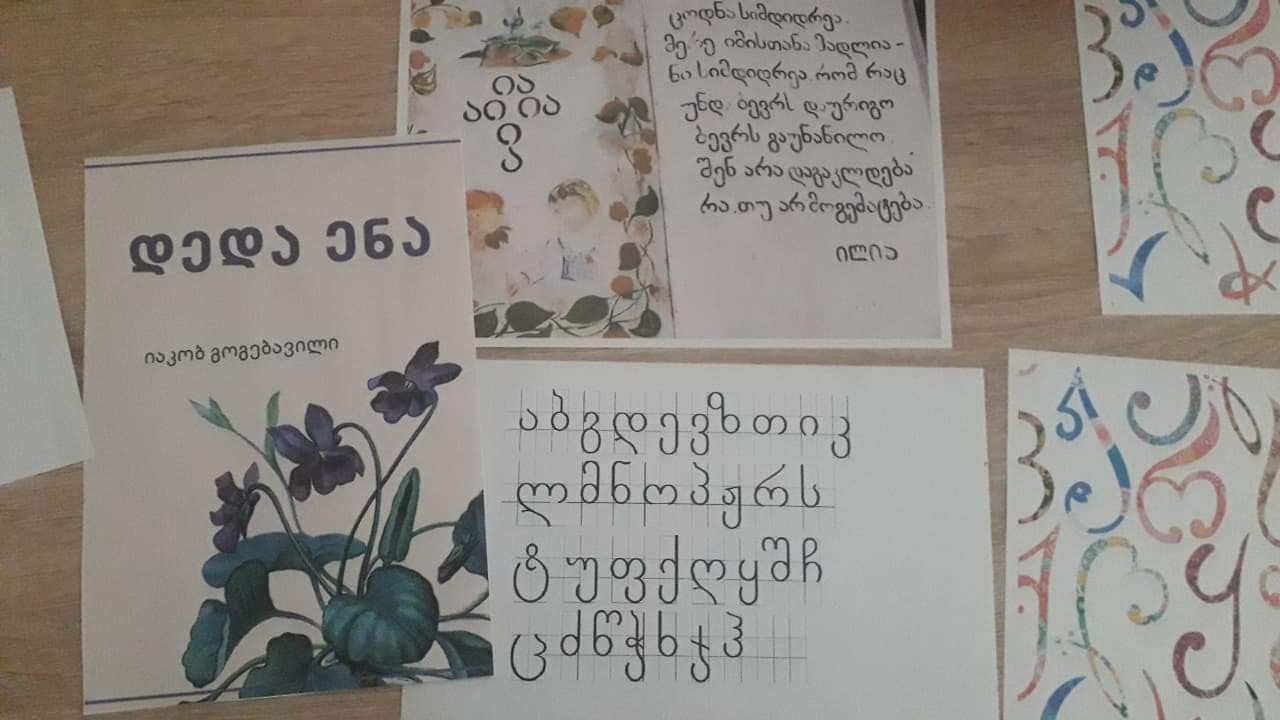 დედა ენა
იაკობ გოგებავილი
ია
აი ია
ი
ა
ცოდნა სიმდიდრეა.
იმისთანა
ნი სიმდიდრეა რომ რაც
უნდ. ბევრს დაურიგო
ბევრს გაუნაწილო
შენ არა დაგაკლდება
რა. თუ არ მოგემატება.
ილია
ა ბ გ დ ე ვ ზ თ ი კ
ლ მ ნ ო პ ჟ რ ს
ტ უ ფ ქ ღ ყ შ ჩ
ც ძ წ ჭ ხ ჯ ჰ